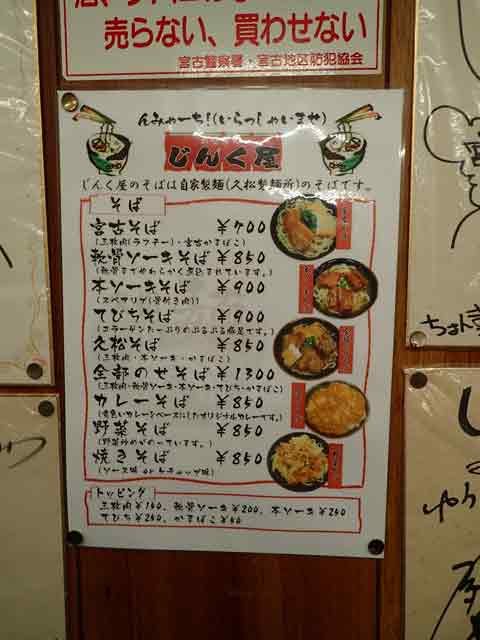 売らない、買わせない
宮古警察署・宮古地区防犯協会
んみゃーち!(いらっしゃいませ)
じんく屋
じんく屋のそばは自家製麺(久松製麺所)のそばです。
そば
宮古そば ¥700
(三枚肉(ラフテー)・宮古かまぼこ)
軟骨ソーキそば ¥850
(軟骨までやわらかく煮込まれています。)
本ソーキそば ¥900
(スペアリブ(骨付き肉))
てびちそば ¥900
(コラーゲンたっぷりのぷるぷる豚足です。)
久松そば ¥850
(三枚肉・本ソーキ・かまぼこ)
全部のせそば ¥1300
(三枚肉・軟骨ソーキ・本ソーキ・てびち・かまぼこ)
カレーそば ¥850
(黄色いカレーをベースにしたオリジナルカレーです。)
野菜そば ¥850
(野菜炒めがのっています。)
焼きそば ¥850
(ソース味 or ケチャップ味)
トッピング
三枚肉¥150、軟骨ソーキ¥200、本ソーキ¥250
てびち¥250、かまぼこ¥50